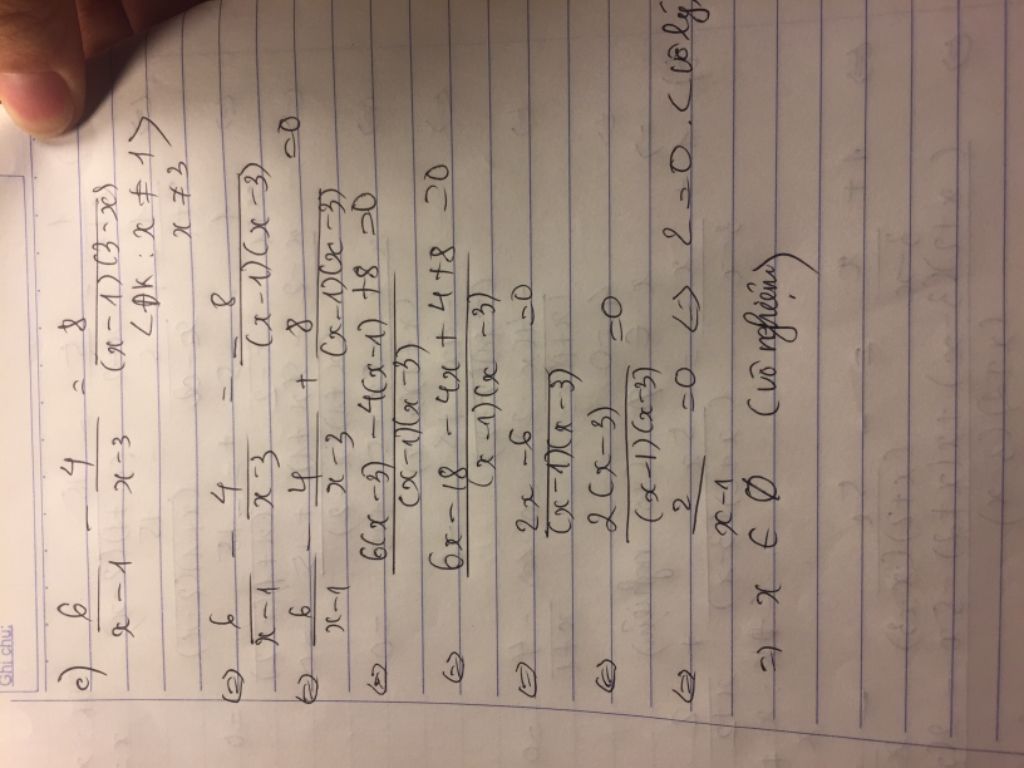 Ghi chú:
c) 6/(x-1) - 4/(x-3) = 8/((x-1)(3-x))
<ĐK: x ≠ 1>
x ≠ 3
(=) 6/(x-1) - 4/(x-3) = - 8/((x-1)(x-3))
(=) 6/(x-1) - 4/(x-3) + 8/((x-1)(x-3)) = 0
(=) (6(x-3) - 4(x-1) + 8)/((x-1)(x-3)) = 0
(=) (6x - 18 - 4x + 4 + 8)/((x-1)(x-3)) = 0
(=) (2x - 6)/((x-1)(x-3)) = 0
(=) 2(x-3)/((x-1)(x-3)) = 0
(=) 2/(x-1) = 0 <=> 2 = 0. (vô lý)
=) x ∈ Ø (vô nghiệm)